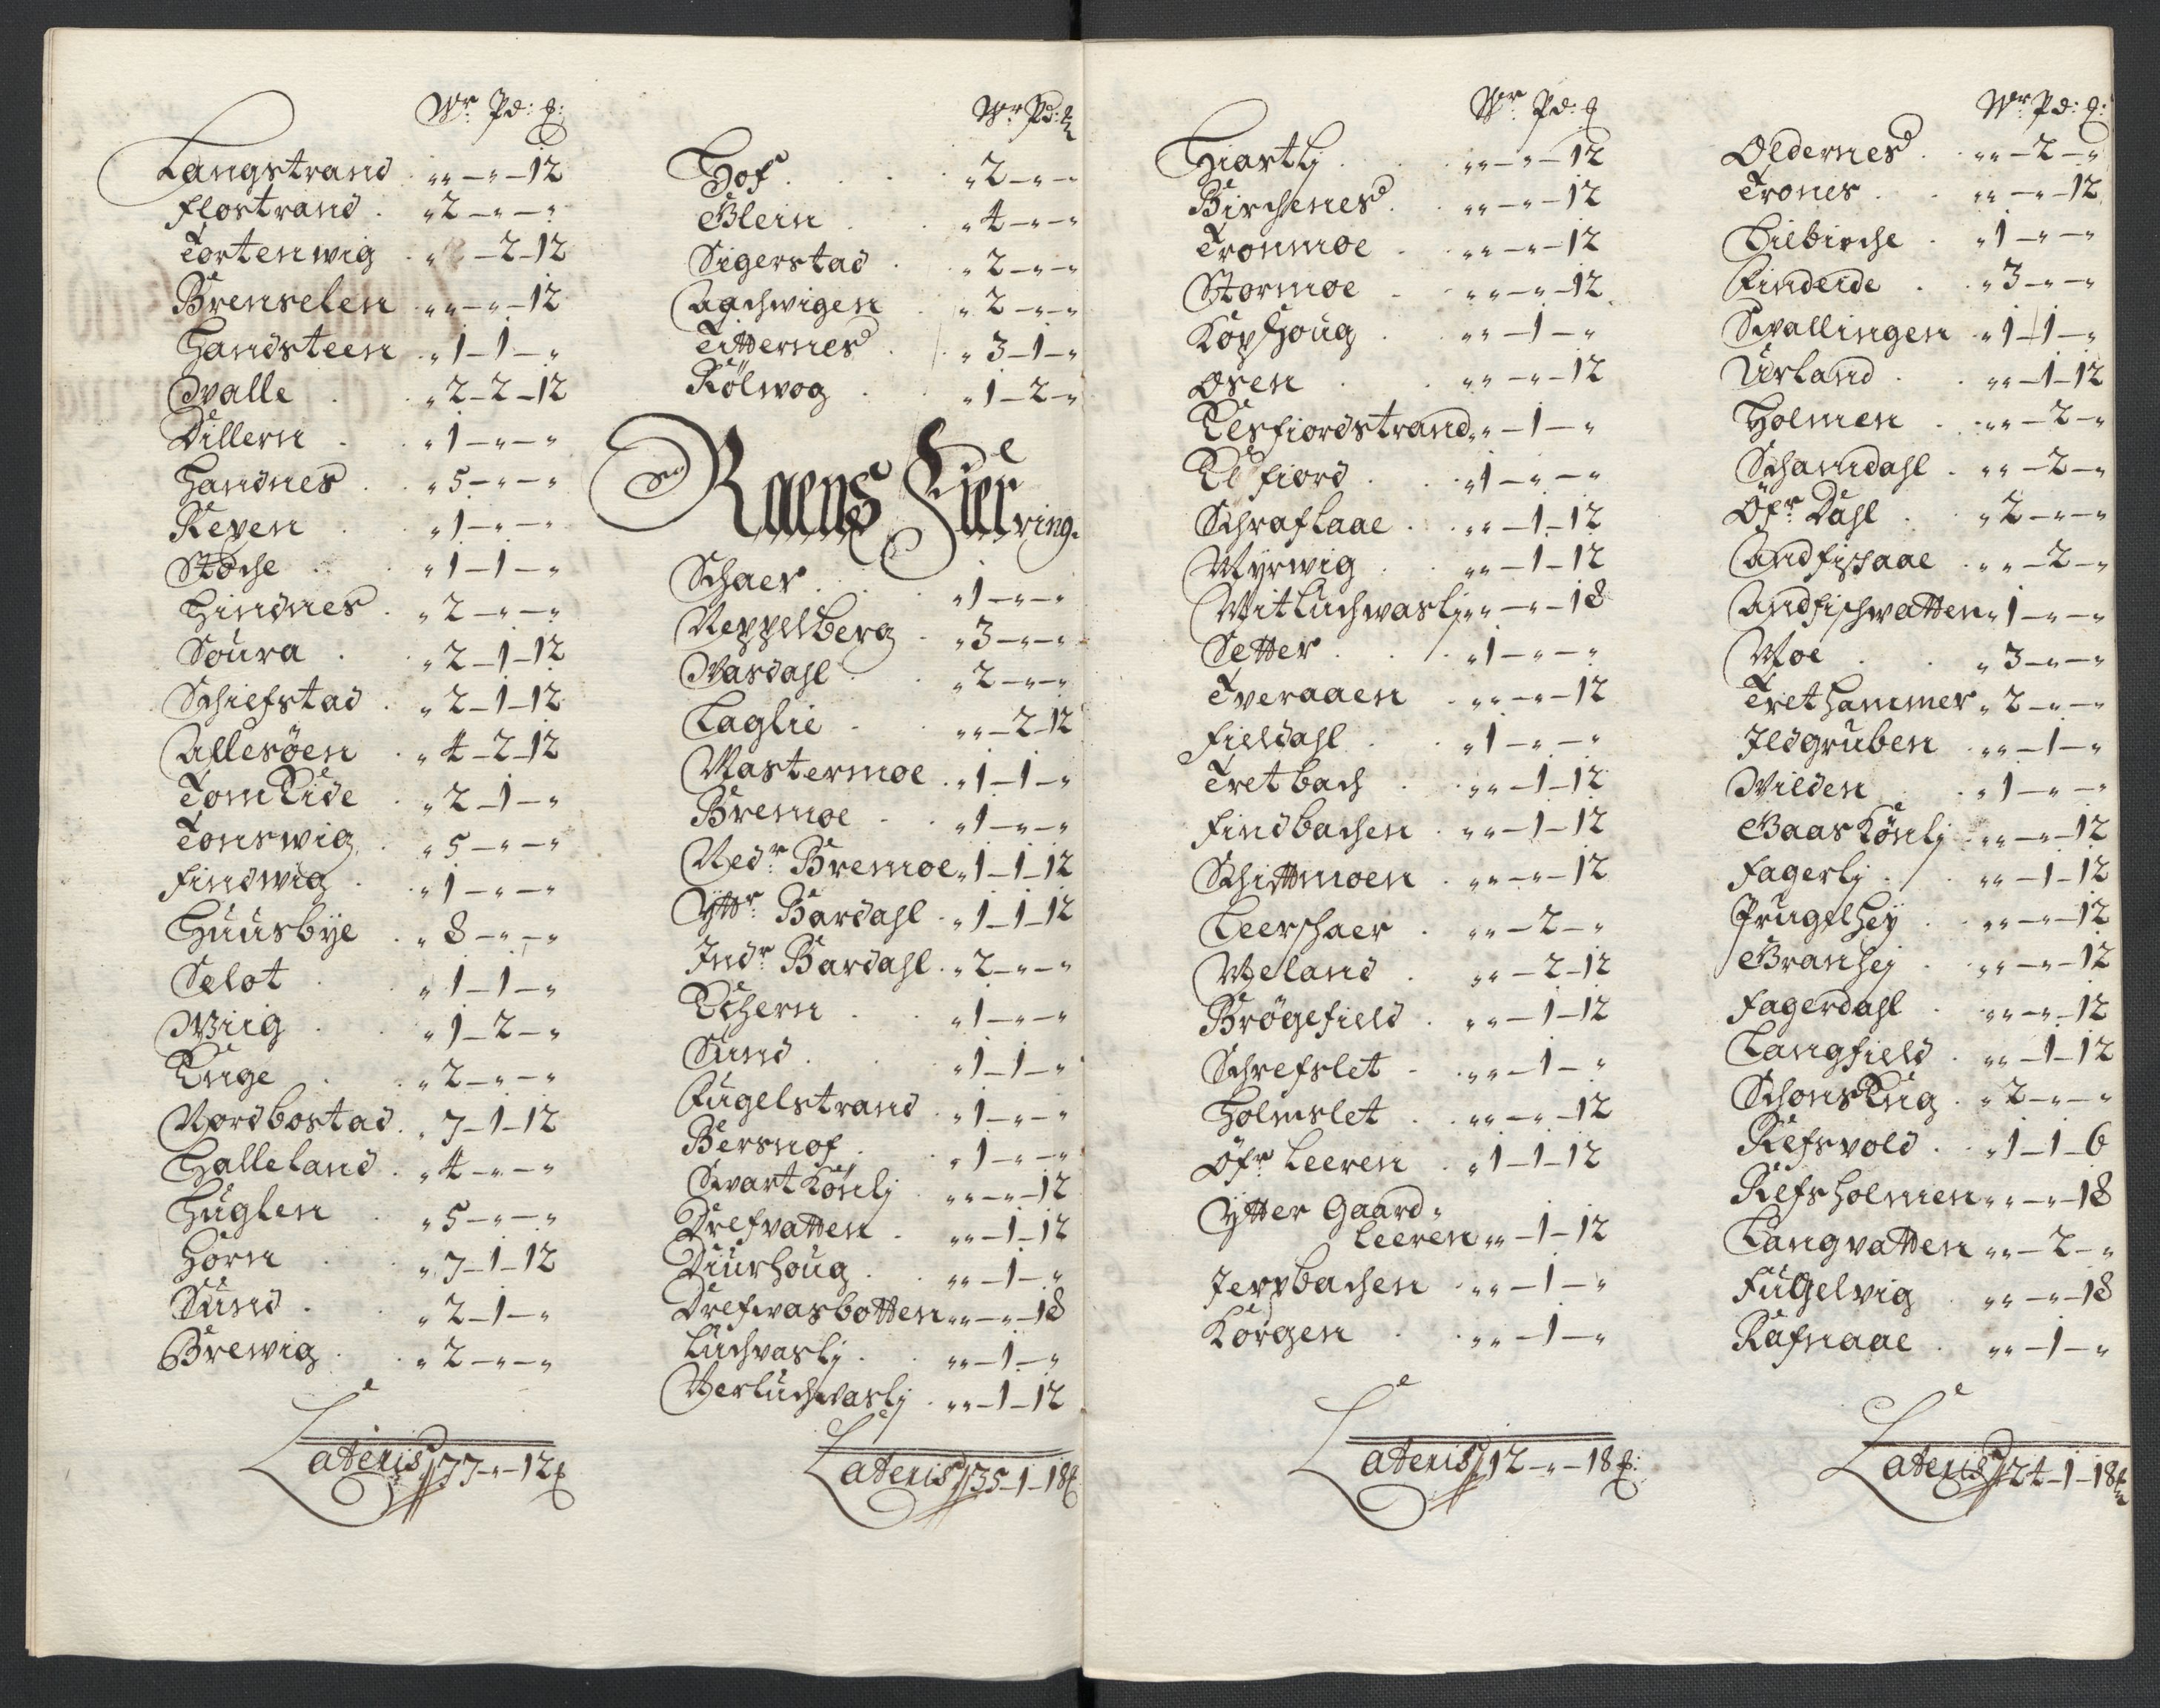 Wr Pd: ₰:
Langstrand . „„ – „ – 12
Flostrand . „ 2 – „ – „
Tortenwig . „ – 2 – 12
Brenselen „„ – „ – 12
Handsteen . „ 1 – 1 – „
Walle . „ 2 – 2 – 12
Dillern . „ 1 – „ – „
Handnes . „ 5 – „ – „
Reven . „ 1 – „ – „
Stoche . „ 1 – 1 – „
Hindnes . „ 2 – „ – „
Soura . „ 2 – 1 – 12
Schiefstad . „ 2 – 1 – 12
Allesöen . „ 4 – 2 – 12
Tom Eide . „ 2 – 1 – „
Tonswig . „ 5 – „ – „
Findwig . „ 1 – „ – „
Huusbye . „ 8 – „ – „
Selot . „ 1 – 1 – „
Wiig . „ 1 – 2 – „
Enge . „ 2 – „ – „
Nordbostad . „ 7 – 1 – 12
Halleland . „ 4 – „ – „
Huglen . „ 5 – „ – „
Horn . „ 7 – 1 – 12
Sund . „ 2 – 1 – „
Brewig . „ 2 – „ – „
Lateris 177 – „ – 12 ₰
Wr Pd: ₰
Hof . „ 2 – „ – „
Glein . „ 4 – „ – „
Sigerstad . „ 2 – „ – „
Aachwigen „ 2 – „ – „
Titternes . „ 3 – 1 – „
Kölwog . „ 1 – 2 – „
Raens Fierring.
Schaer . „ 1 – „ – „
Neppelberg . „ 3 – „ – „
Wardahl . „ 2 – „ – „
Laglie . „„ – 2 – 12
Mastermoe . „ 1 – 1 – „
Bremoe . „ 1 – „ – „
Nedr Bremoe „ 1 – 1 – 12
Yttr Bardahl . „ 1 – 1 – 12
Indr Bardahl . „ 2 – „ – „
Echern . „ 1 – „ – „
Sund . „ 1 – 1 – „
Fugelstrand . „ 1 – „ – „
Bersnof . „ 1 – „ – „
Svart Könlj . „„ – „ – 12
Drefvatten . „„ – 1 – 12
Diurhoug . „„ – 1 – „
Drefwasbotten „„ – „ – 18
Luchvaslj . „„ – 1 – „
Verluchvaslj . „„ – 1 – 12
Lateris 135 – 1 – 18 ₰
Wr Pd: ₰
Hiartlj . „„ – „ – 12
Birchenes . „„ – „ – 12
Tronmoe . „„ – „ – 12
Stormoe . „„ – „ – 12
Kophoug . „„ – 1 – „
Osen . „„ – „ – 12
Elsfiordstrand „„ – 1 – „
Elsfiord . „ 1 – „ – „
Schraflaae . „„ – 1 – 12
Myrwig . „„ – 1 – 12
Mitluchwaslj „„ – „ – 18
Setter . „ 1 – „ – „
Tveraaen . „„ – „ – 12
Fieldahl . „ 1 – „ – „
Tretbach . „„ – 1 – 12
Findbachen . „„ – 1 – 12
Schittmoen . „„ – „ – 12
Leerschaer . „„ – 2 – „
Meland . „„ – 2 – 12
Brögefield . „„ – 1 – 12
Schrefslet . „„ – 1 – „
Holmslet . „„ – „ – 12
Öfr Leeren . „ 1 – 1 – 12
Ytter Gaard „
Leeren „„ – 1 – 12
Jeppbachen . „„ – 1 – „
Korgen . „„ – 1 – „
Lateris 112 – „ – 18 ₰:
Wr Pd: ₰:
Oldernes . „„ – 2 – „
Trones . „„ – „ – 12
Lilbirche . „ 1 – „ – „
Findeide . „ 3 – „ – „
Svallingen „ 1 – 1 – „
Urland . „„ – 1 – 12
Holmen . „„ – 2 – „
Schamdahl . „„ – 2 – „
Öfr Dahl . „ 2 – „ – „
Andfischaae . „„ – 2 – „
Andfischvatten „ 1 – „ – „
Moe . „ 3 – „ – „
Trethammer „ 2 – „ – „
Ildgruben . „„ – 1 – „
Wilden . „ 1 – „ – „
Gaas Könlj . „„ – „ – 12
Fagerlj . „„ – 1 – 12
„„ – „ – 12
Granhej . „„ – „ – 12
Fagerdahl . „„ – „ – 12
Langfield . „„ – 1 – 12
Schons Eng . „ 2 – „ – „
Refsvold . „ 1 – 1 – 6
Refsholmen „„ – „ – 18
Langvatten „„ – 2 – „
Fugelvig . „„ – „ – 18
Rafnaae . „„ – 1 – „
Lateris 124 – 1 – 18 ₰